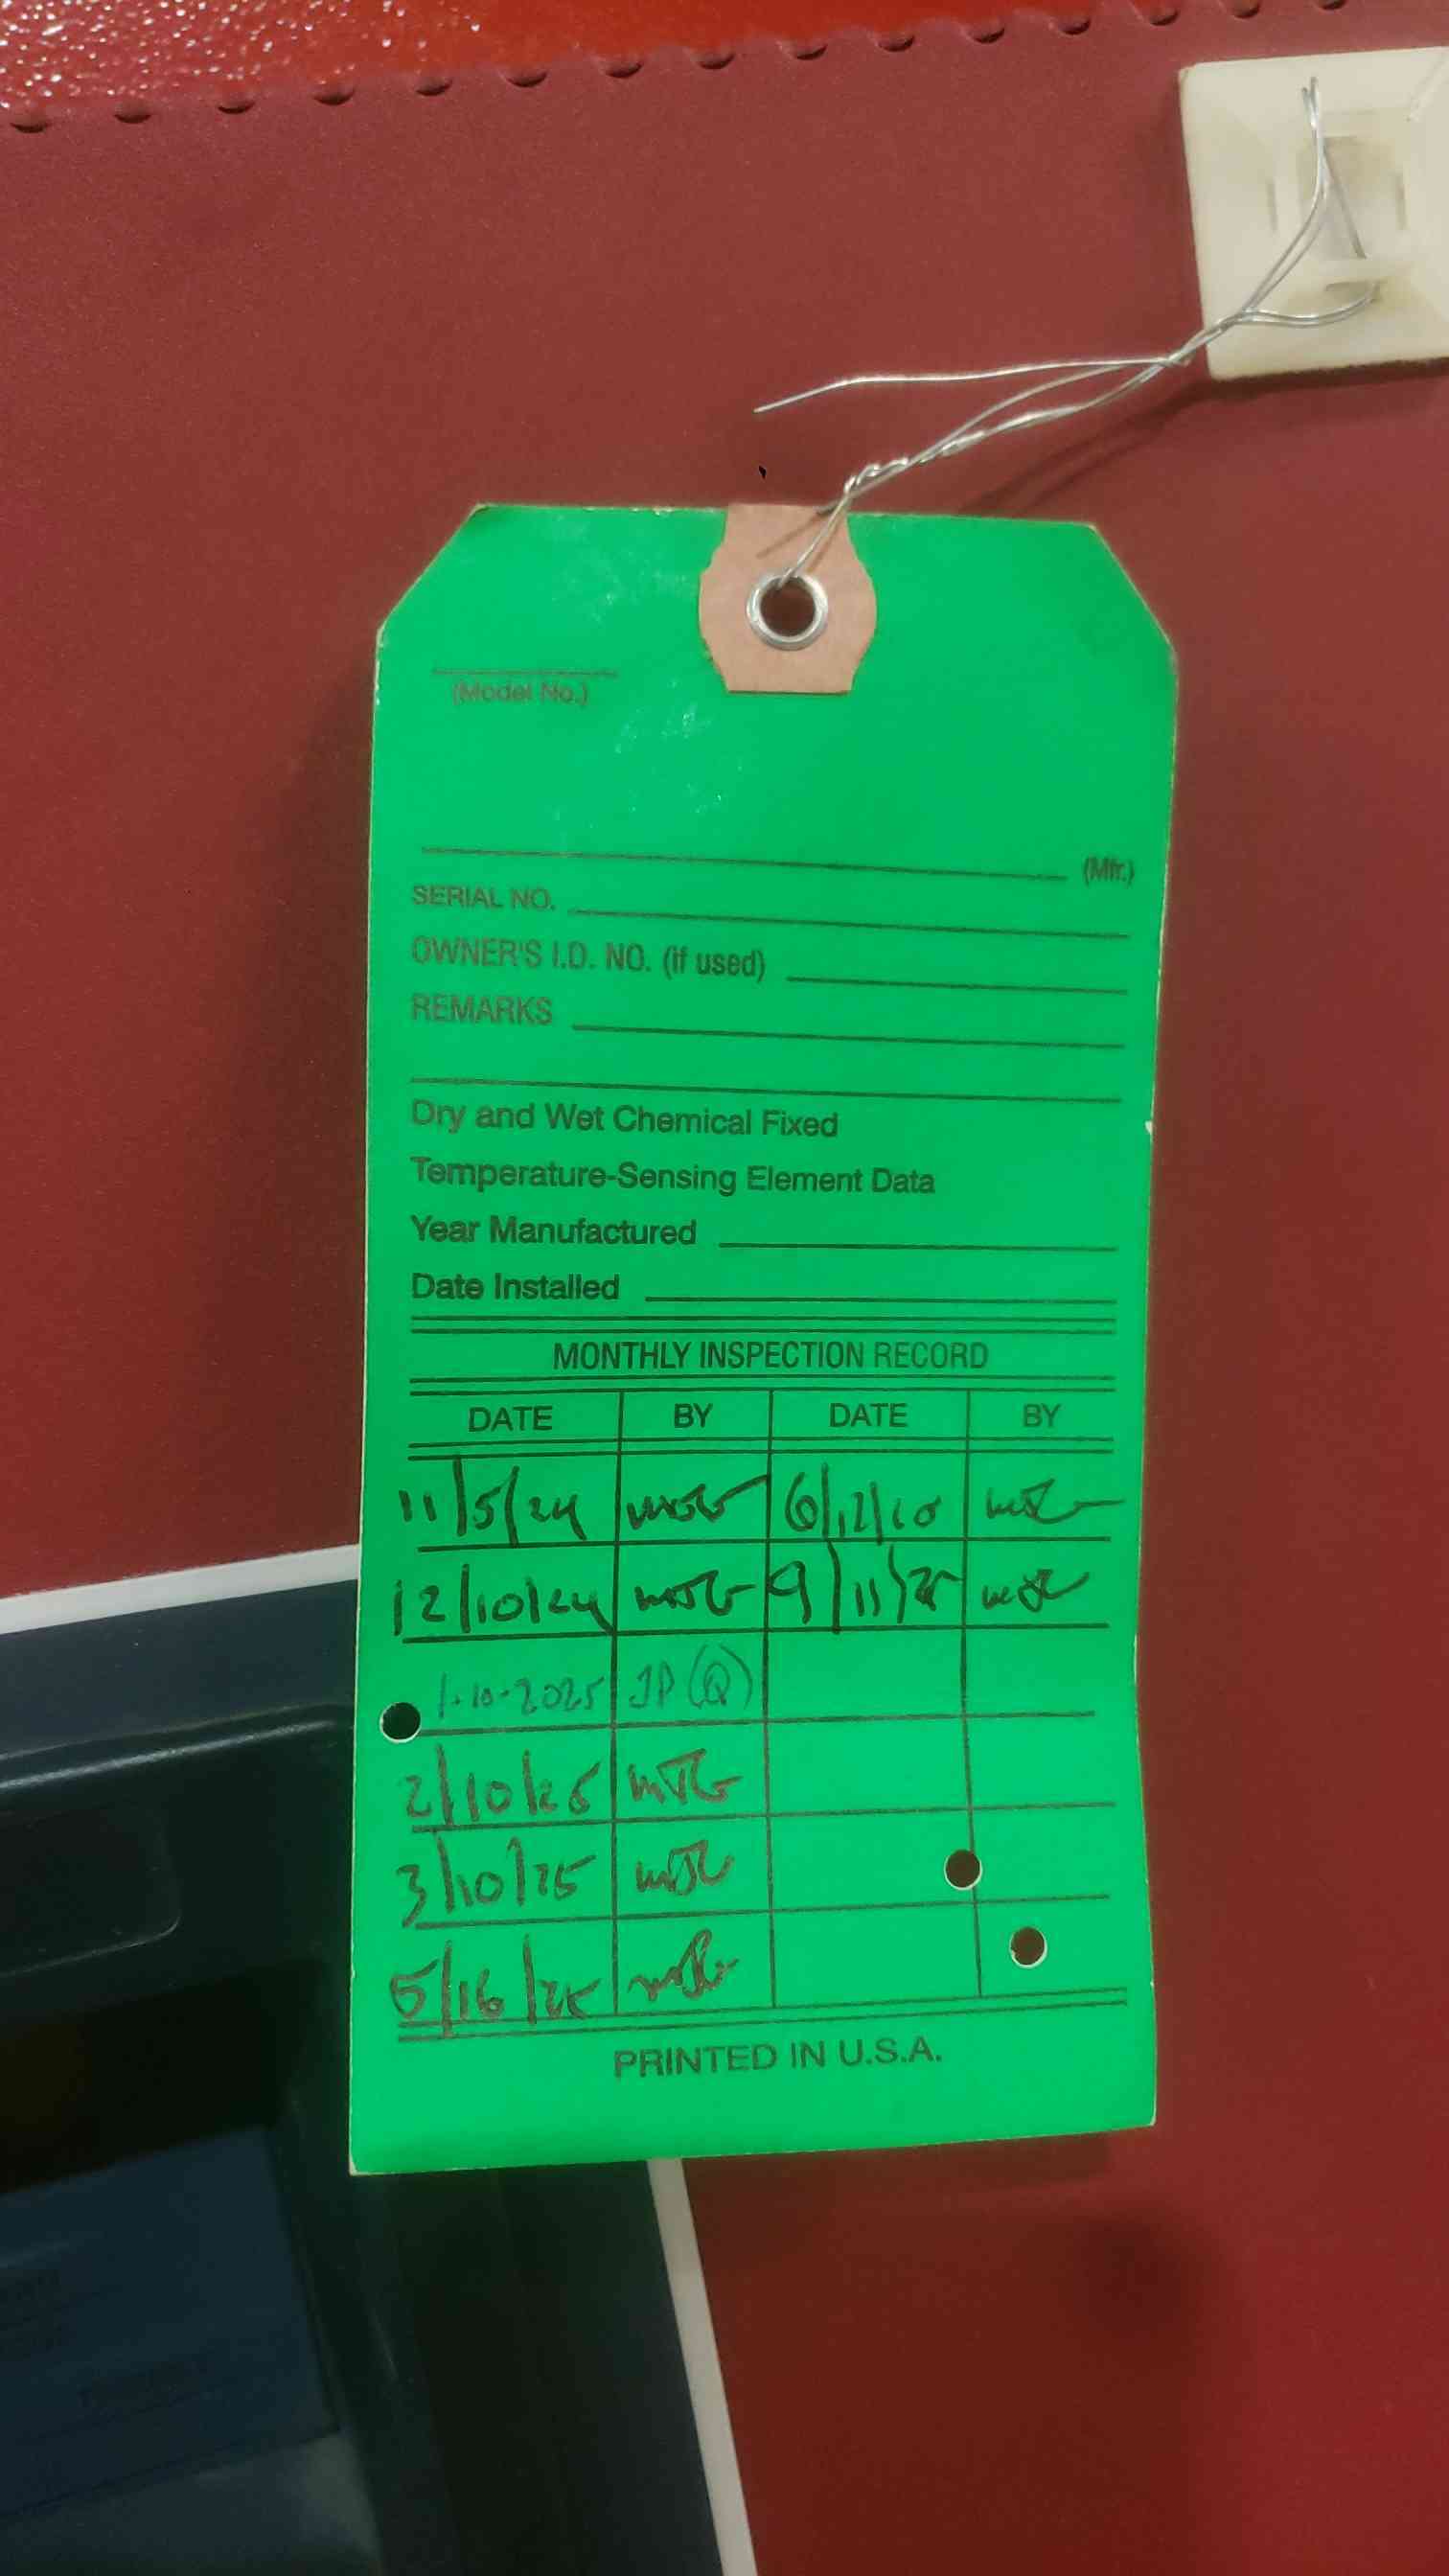 (Model No.)
(Mfr.)
SERIAL NO.
OWNER'S I.D. NO. (if used)
REMARKS
Dry and Wet Chemical Fixed
Temperature-Sensing Element Data
Year Manufactured
Date Installed
MONTHLY INSPECTION RECORD
DATE BY DATE BY
11/5/24
12/10/24 9/11/25
1-10-2025 JP (Q)
2/10/25
3/10/25
5/16/25
PRINTED IN U.S.A.